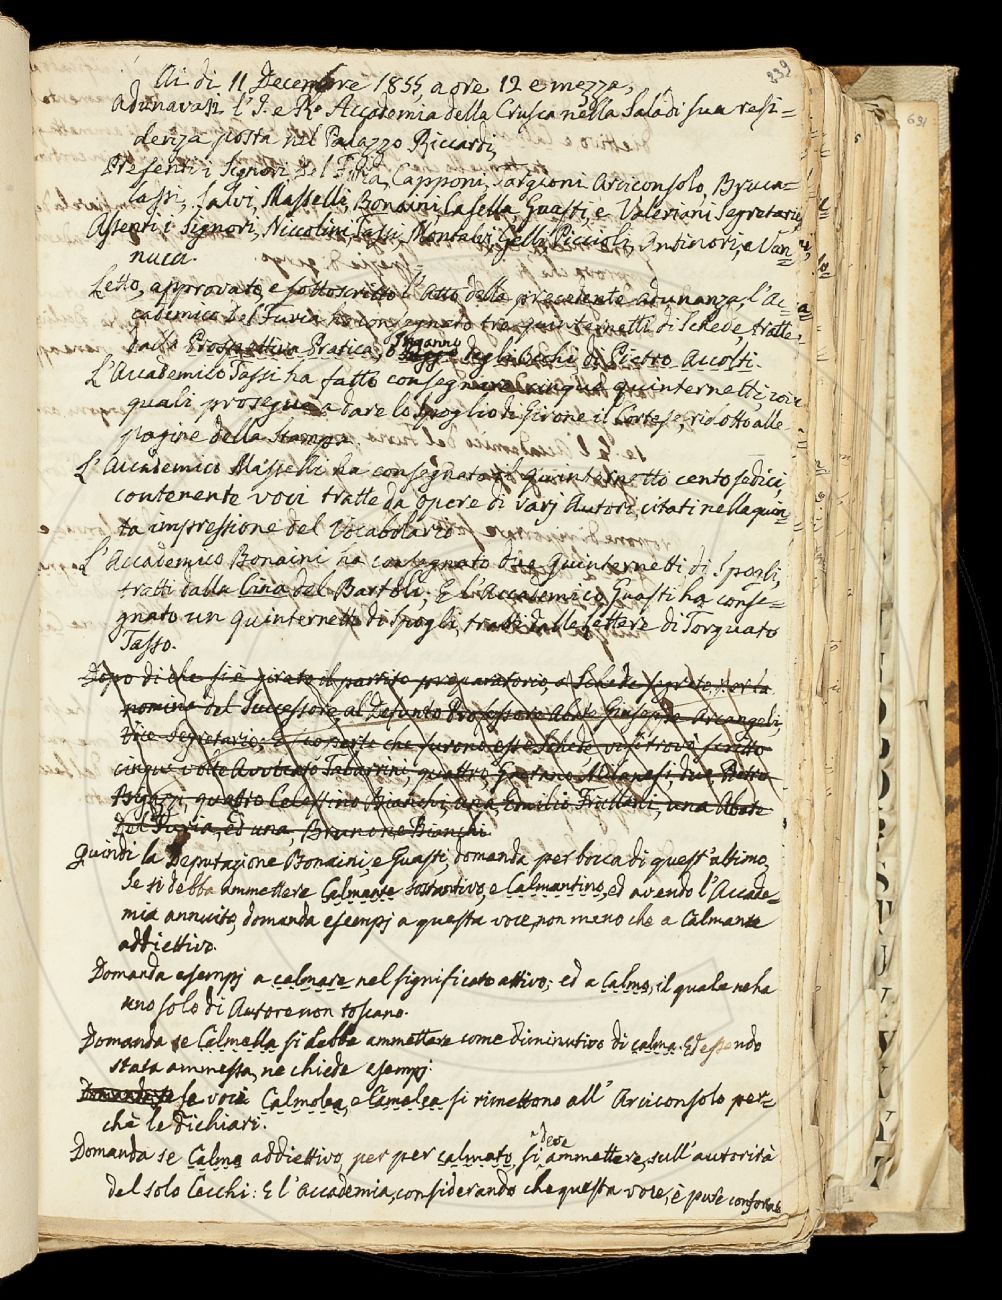 239
Ai dì 11 Decembre 1855, a ore 12 e mezza,
adunavasi l'I. e R.e Accademia della Crusca nella Sala di sua resi=
denza posta nel Palazzo Riccardi,
Presenti i Signori Del Furia, Capponi, Targioni Arciconsolo, Bruca=
lassi, Salvi, Masselli, Bonaini, Casella, Guasti, e Valeriani Segretario,
Assenti i Signori, Niccolini, Tassi, Montalvi, Gelli, Piccioli, Antinori, e Van=
nucci.
Letto, approvato, e sottoscritto l'Atto della precedente adunanza, l'Ac=
cademico Del Furia ha consegnato tre quinternetti di Schede, tratte
dalla Prospettiva Pratica, o Inganno degli Occhi di Pietro Accolti.
L'Accademico Tassi ha fatto consegnare cinque quinternetti, coi
quali prosegue a dare lo Spoglio di Girone il Cortese, ridotto alle
pagine della stampa.
L'Accademico Masselli ha consegnato il quinternotto cento sedici,
contenente voci tratte da Opere di varj Autori, citati nella quin=
ta impressione del Vocabolario.
L'Accademico Bonaini ha consegnato due quinternetti di Spogli,
tratti dalla Cina del Bartoli; E l'Accademico Guasti ha conse=
gnato un quinternetto di spogli, tratti dalle Lettere di Torquato
Tasso.
Dopo di che si è girato il partito preparatorio, a Schede segrete, per la
nomina del Successore al Defunto Professore Abate Giuseppe Arcangeli,
Vice Segretario; E scoperte che furono esse Schede vi si trovò scritto
cinque volte Avvocato Tabarrini, quattro, Gaetano Milanesi, due Pietro
Bigazzi, quattro Celestino Bianchi, una Emilio Frullani, una Abate
Del Furia, ed una, Brunone Bianchi.
Quindi la Deputazione Bonaini, e Guasti, domanda per bocca di quest'ultimo,
Se si debba ammettere Calmante sostantivo, e Calmantino, ed avendo l'Accade=
mia annuito, domanda esempj a questa voce, non meno che a Calmante
addiettivo.
Domanda esempj a calmare nel significato attivo; ed a Calmo, il quale ne ha
uno solo di Autore non toscano.
Domanda se Calmella si debba ammettere come diminutivo di calma. Ed essendo
stata ammessa, ne chiede esempj.
Domanda se le voci Calmolea, e Camolea si rimettono all'Arciconsolo per=
chè le dichiari.
Domanda se Calmo addiettivo, per per calmato, si deve ammettere, sull'autorità
del solo Cecchi: E l'Accademia, considerando che questa voce, è pure confortata